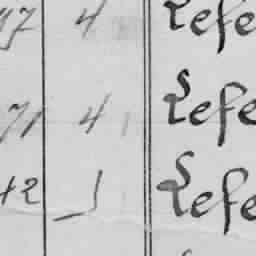 97 4 Lefe
71 4 Lefe
42 1 Lefe